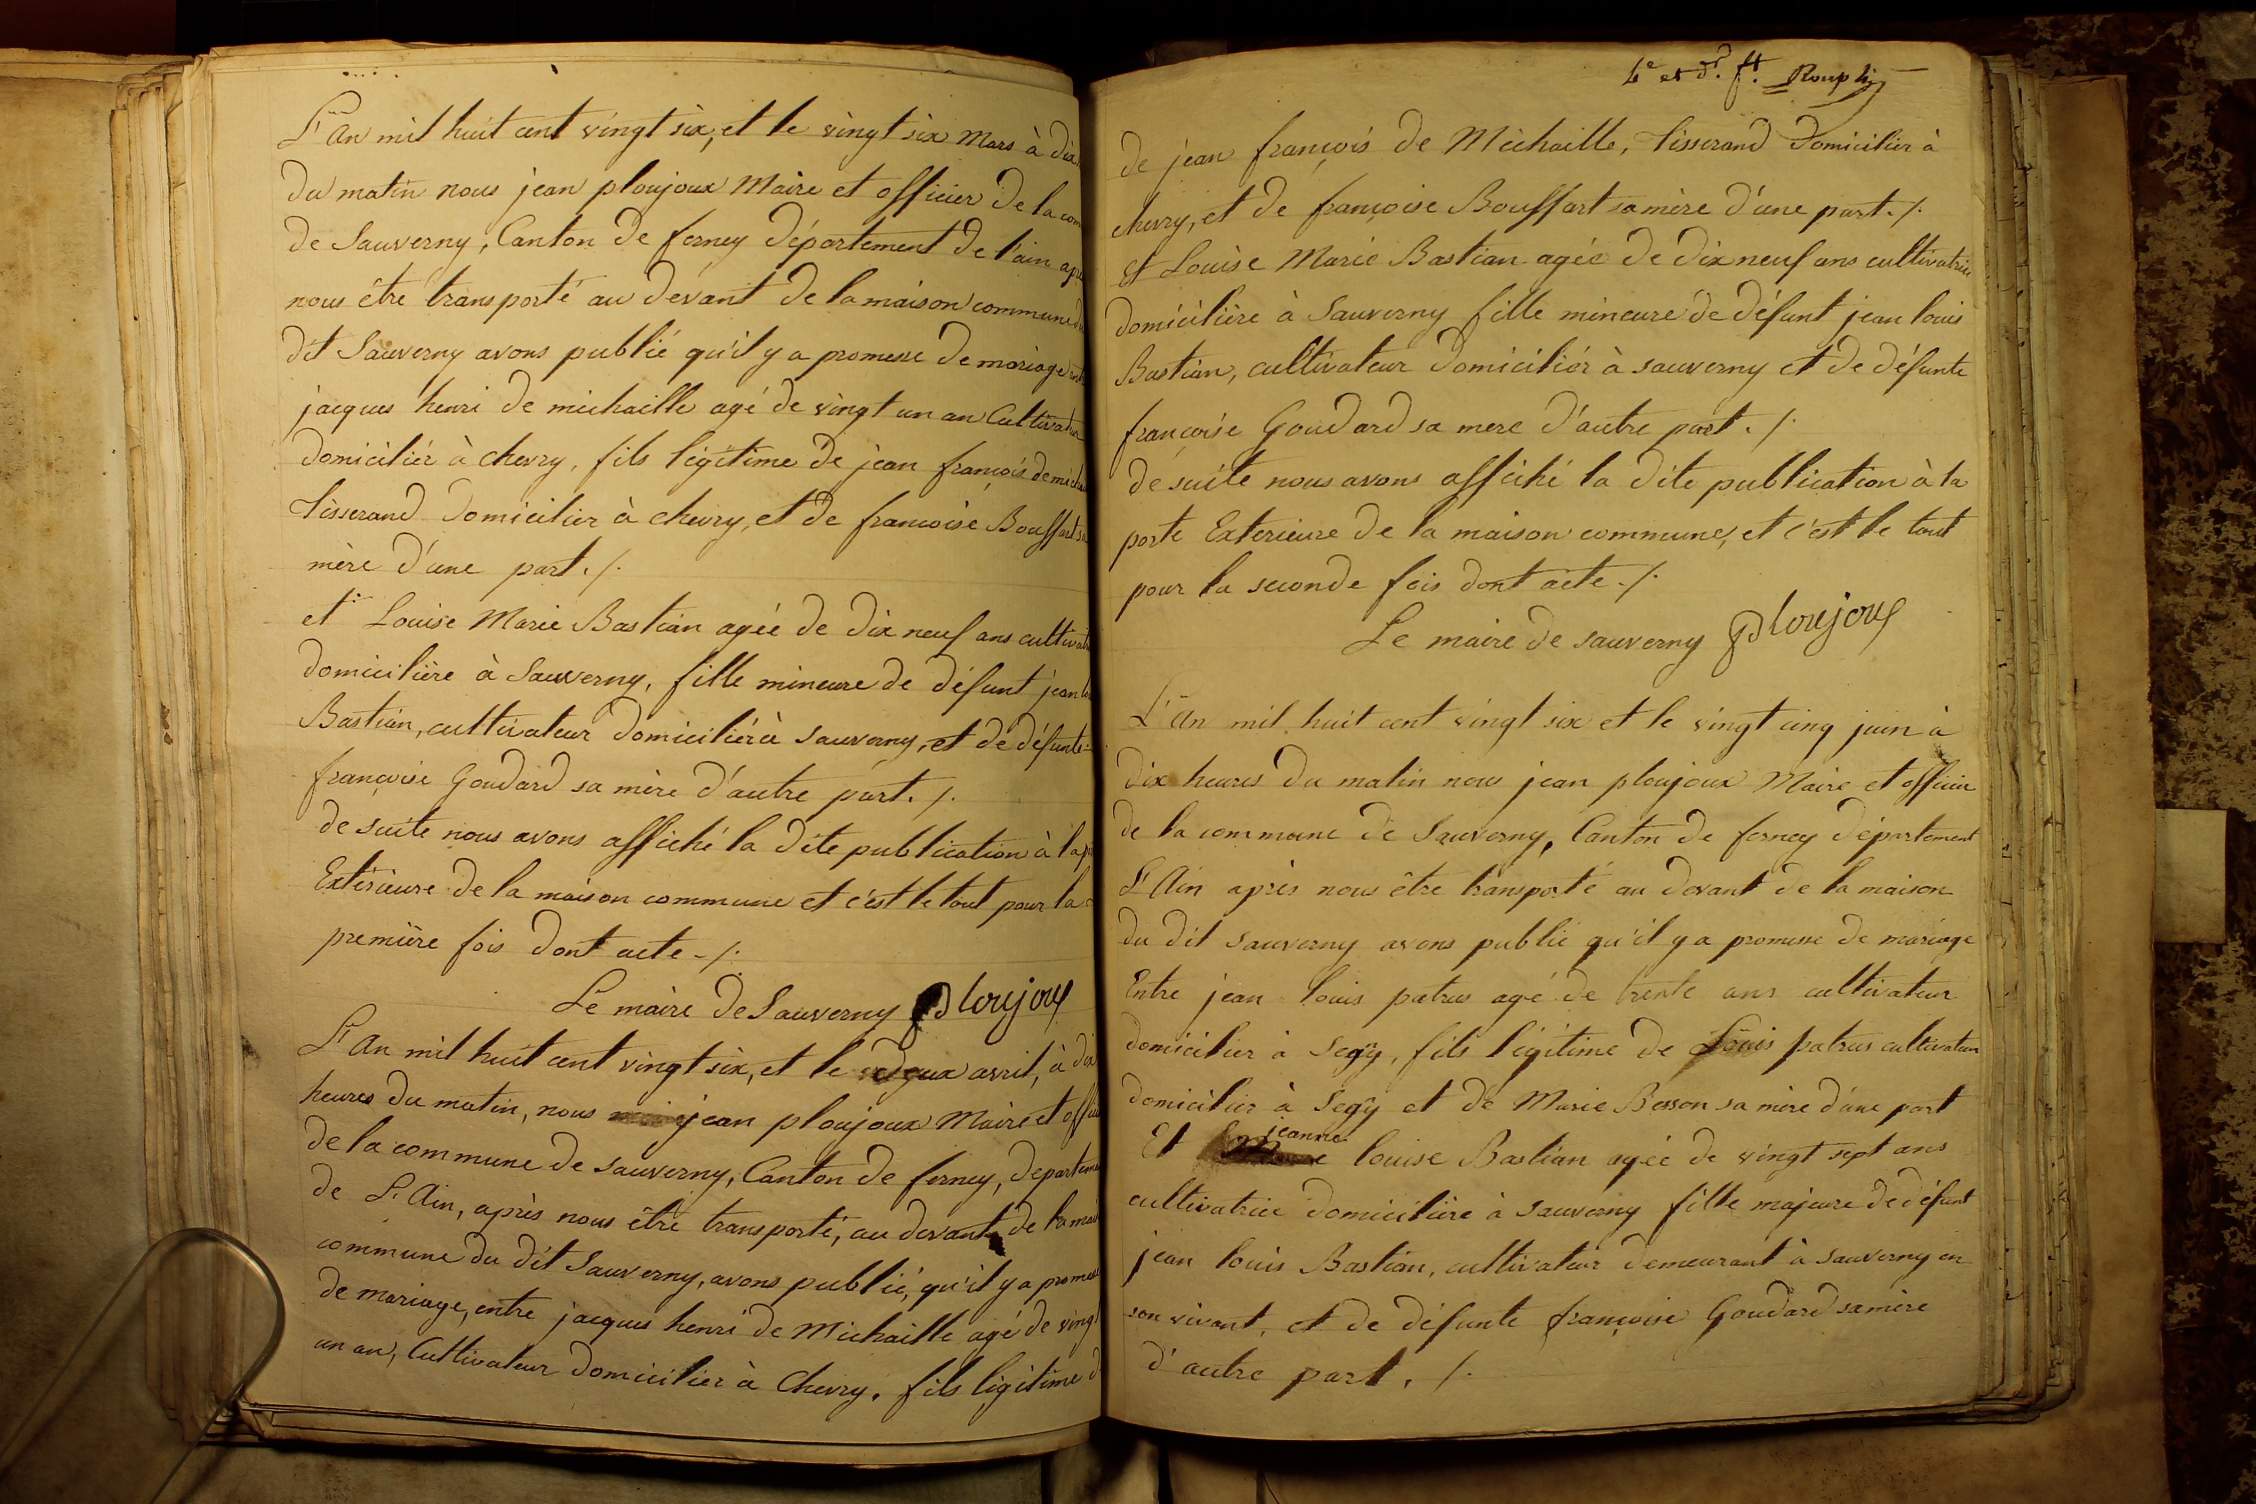 L'An mil huit cent vingt six, et le vingt six Mars à dix
du matin nous jean ploujoux Maire et officier de la com
de Sauverny, Canton de ferney département de l'ain apr
nous être transporté au devant de la maison commune du
dit Sauverny avons publié qu'il y a promesse de mariage ent
jacques henri de michaille agé de vingt un an Cultivateur
domicilier à chevry, fils légitime de jean françois de micha
tisserand domicilier à chevry, et de francoise Bouffart sa
mère d'une part ./.
et Louise Marie Bastian agée de dix neuf ans cultivat
domicilière à Sauverny, fille mineure de défunt jean lo
Bastian, cultivateur domicilier à Sauverny, et de défunte
françoise Goudard sa mère d'autre part. /.
de suite nous avons affiché la dite publication à la po
Extérieure de la maison commune et c'est le tout pour la
première fois dont acte -/.
Le maire de Sauverny Ploujoux
L'An mil huit cent vingt six, et le deux avril, à dix
heures du matin, nous jean ploujoux Maire et offici
de la commune de Sauverny, Canton de ferney, départeme
de L'Ain, après nous être transporté, au devant de la mai
commune du dit Sauverny, avons publié, qu'il y a promesse
de mariage, entre jacques henri de Michaille agé de vingt
un an, Cultivateur domicilier à Chevry, fils légitime d
de jean françois de Michaille, tisserand domicilier à
chevry, et de françoise Bouffart sa mère d'une part ./.
et Louise Marie Bastian agée de dix neuf ans cultivatrice
domicilière à Sauverny fille mineure de défunt jean louis
Bastian, cultivateur domicilier à sauverny et de défunte
françoise Goudard sa mere d'autre part . /.
de suite nous avons affiché la dite publication à la
porte Exterieure de la maison commune, et c'est le tout
pour la seconde fois dont acte -/.
Le maire de sauverny Ploujoux
L'An mil huit cent vingt six et le vingt cinq juin à
dix heures du matin nous jean ploujoux Maire et officier
de la commune de Sauverny, Canton de ferney département
L'Ain après nous être transporté au devant de la maison
du dit Sauverny avons publié qu'il y a promesse de mariage
Entre jean louis patrus agé de trente ans cultivateur
domicilier à Segÿ, fils légitime de Louis patrus cultivateur
domicilier à Segÿ et de Marie Besson sa mère d'une part
Et jeanne louise Bastian agée de vingt sept ans
cultivatrice domicilière à Sauverny fille majeure de défunt
jean louis Bastian, cultivateur demeurant à Sauverny en
son vivant, et de défunte françoise Goudard sa mère
d'autre part . /.